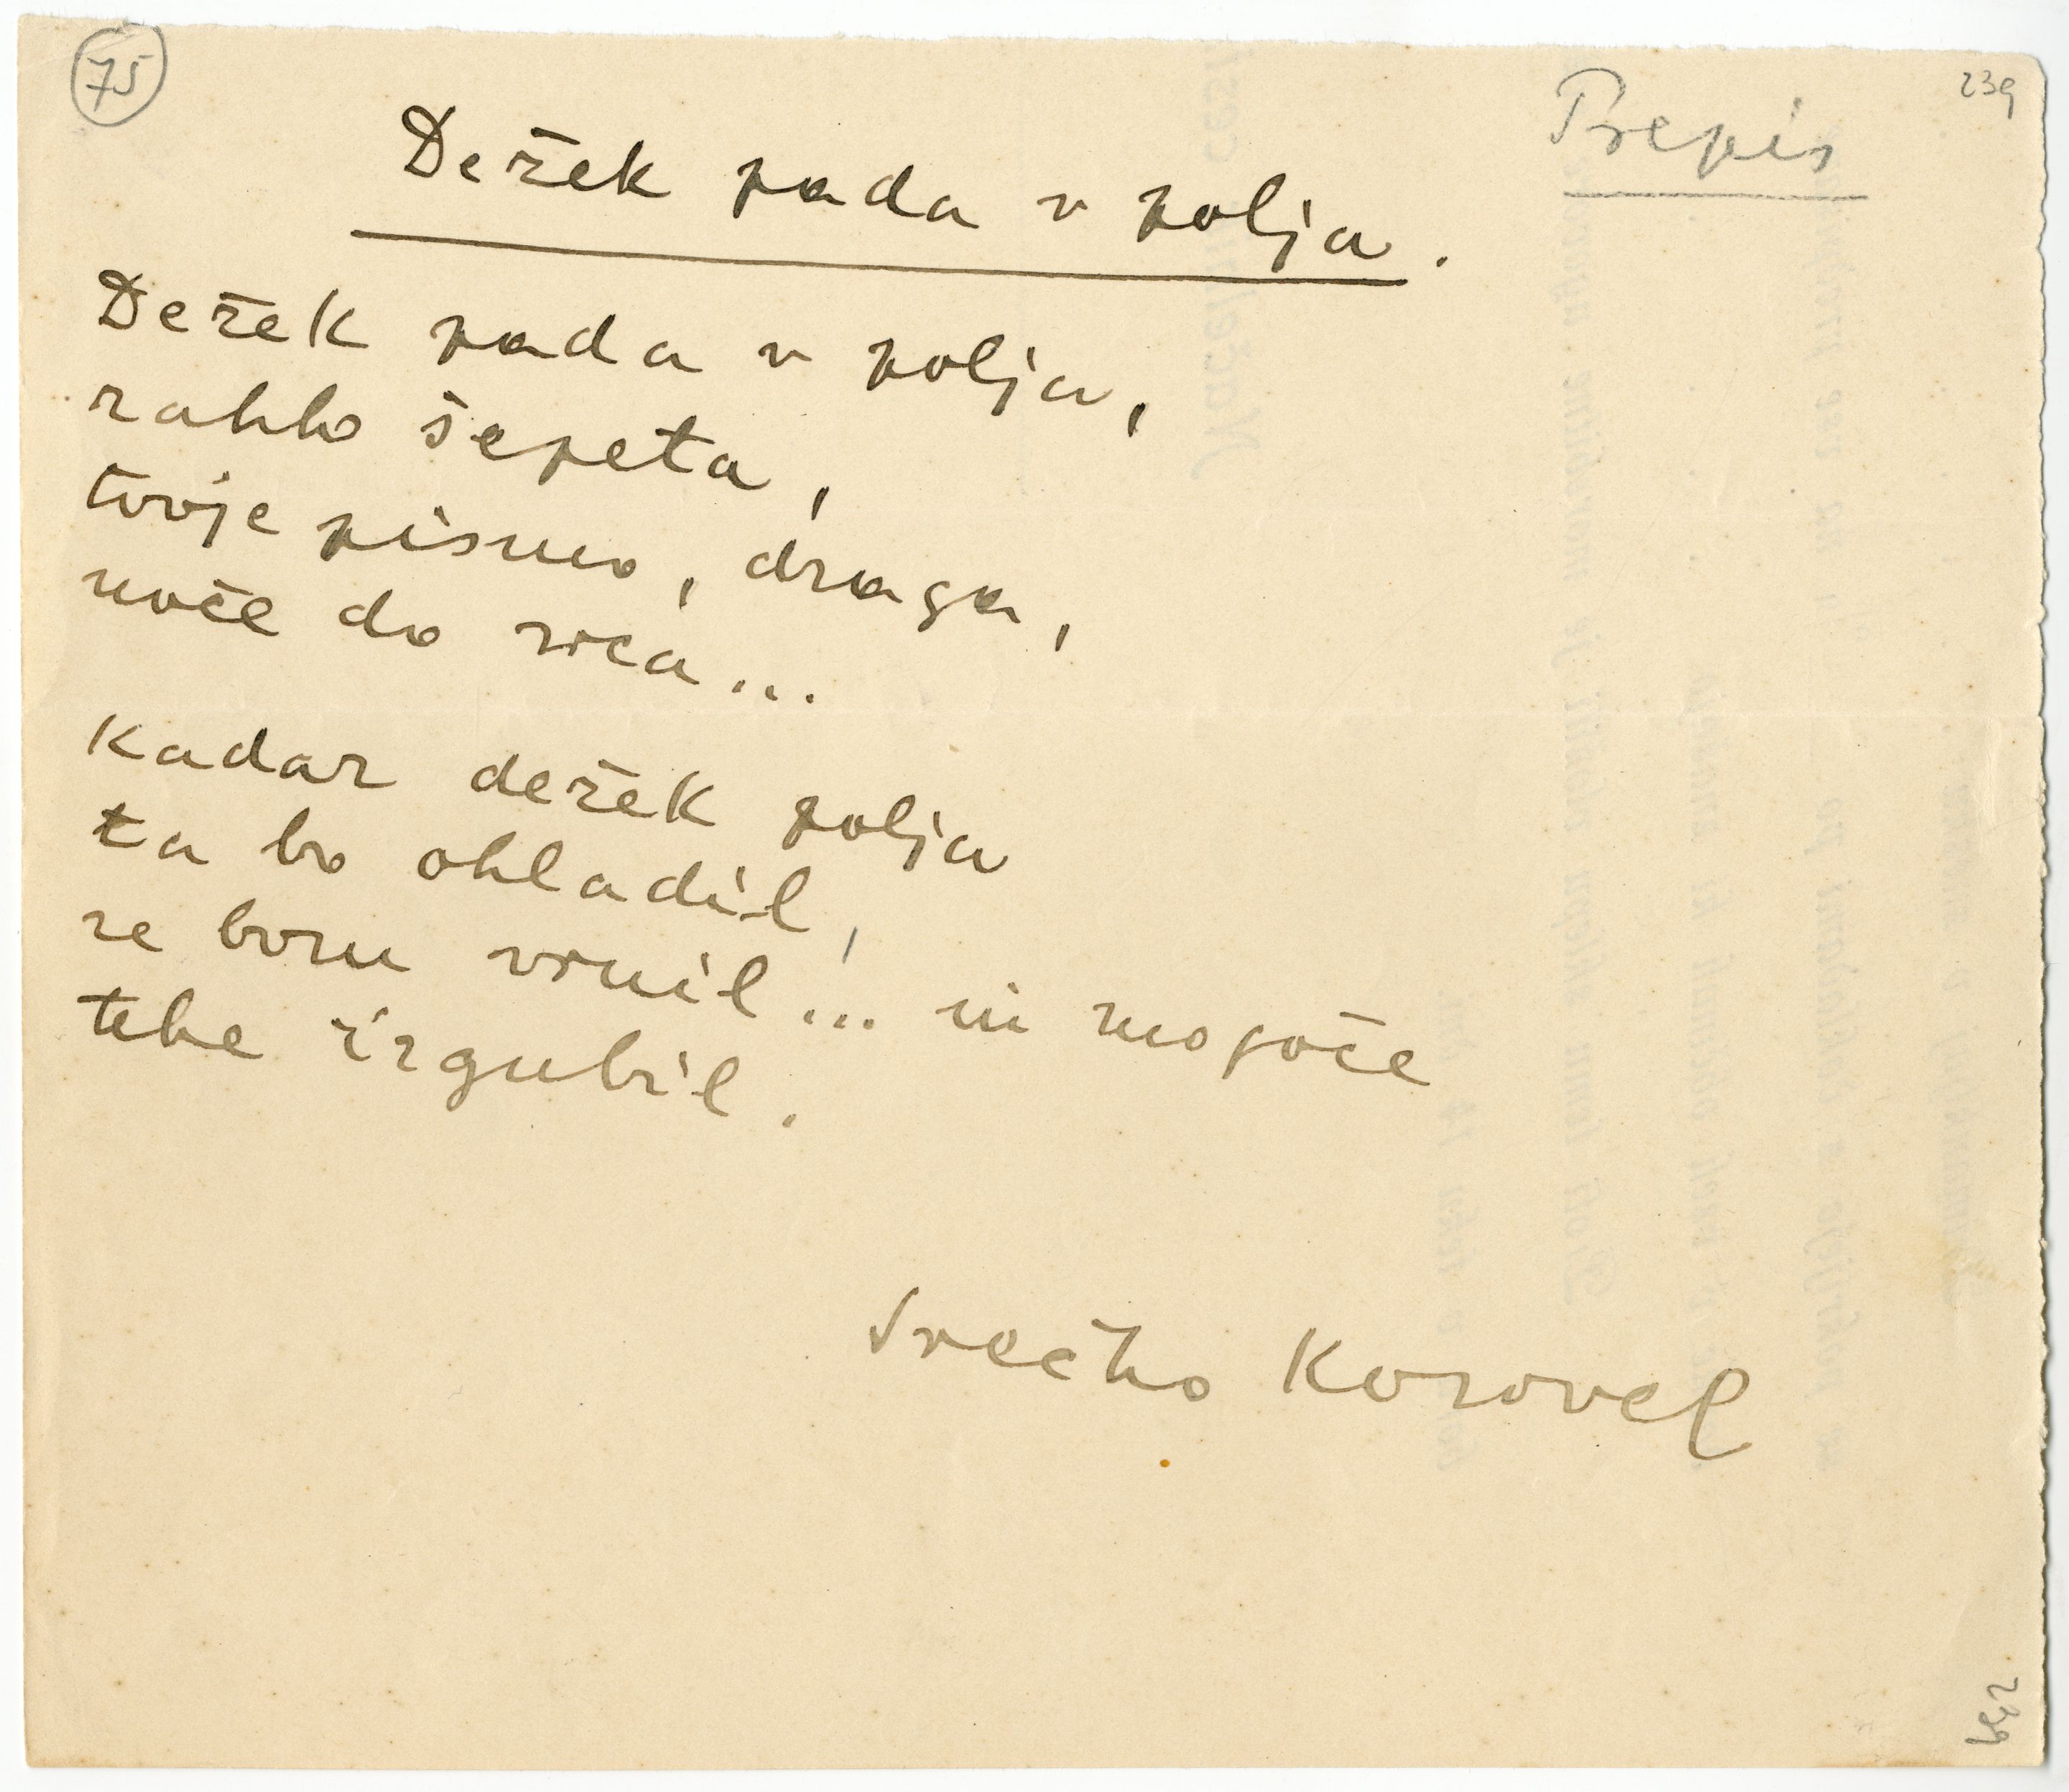 75
Prepis
239
Dežek pada v polja.
Dežek pada v polja,
rahlo šepeta,
tvoje pismo, draga,
noče do srca...
Kadar dežek polja
ta bo ohladil,
se bom vrnil!... in mogoče
tebe izgubil.
Srečko Kosovel